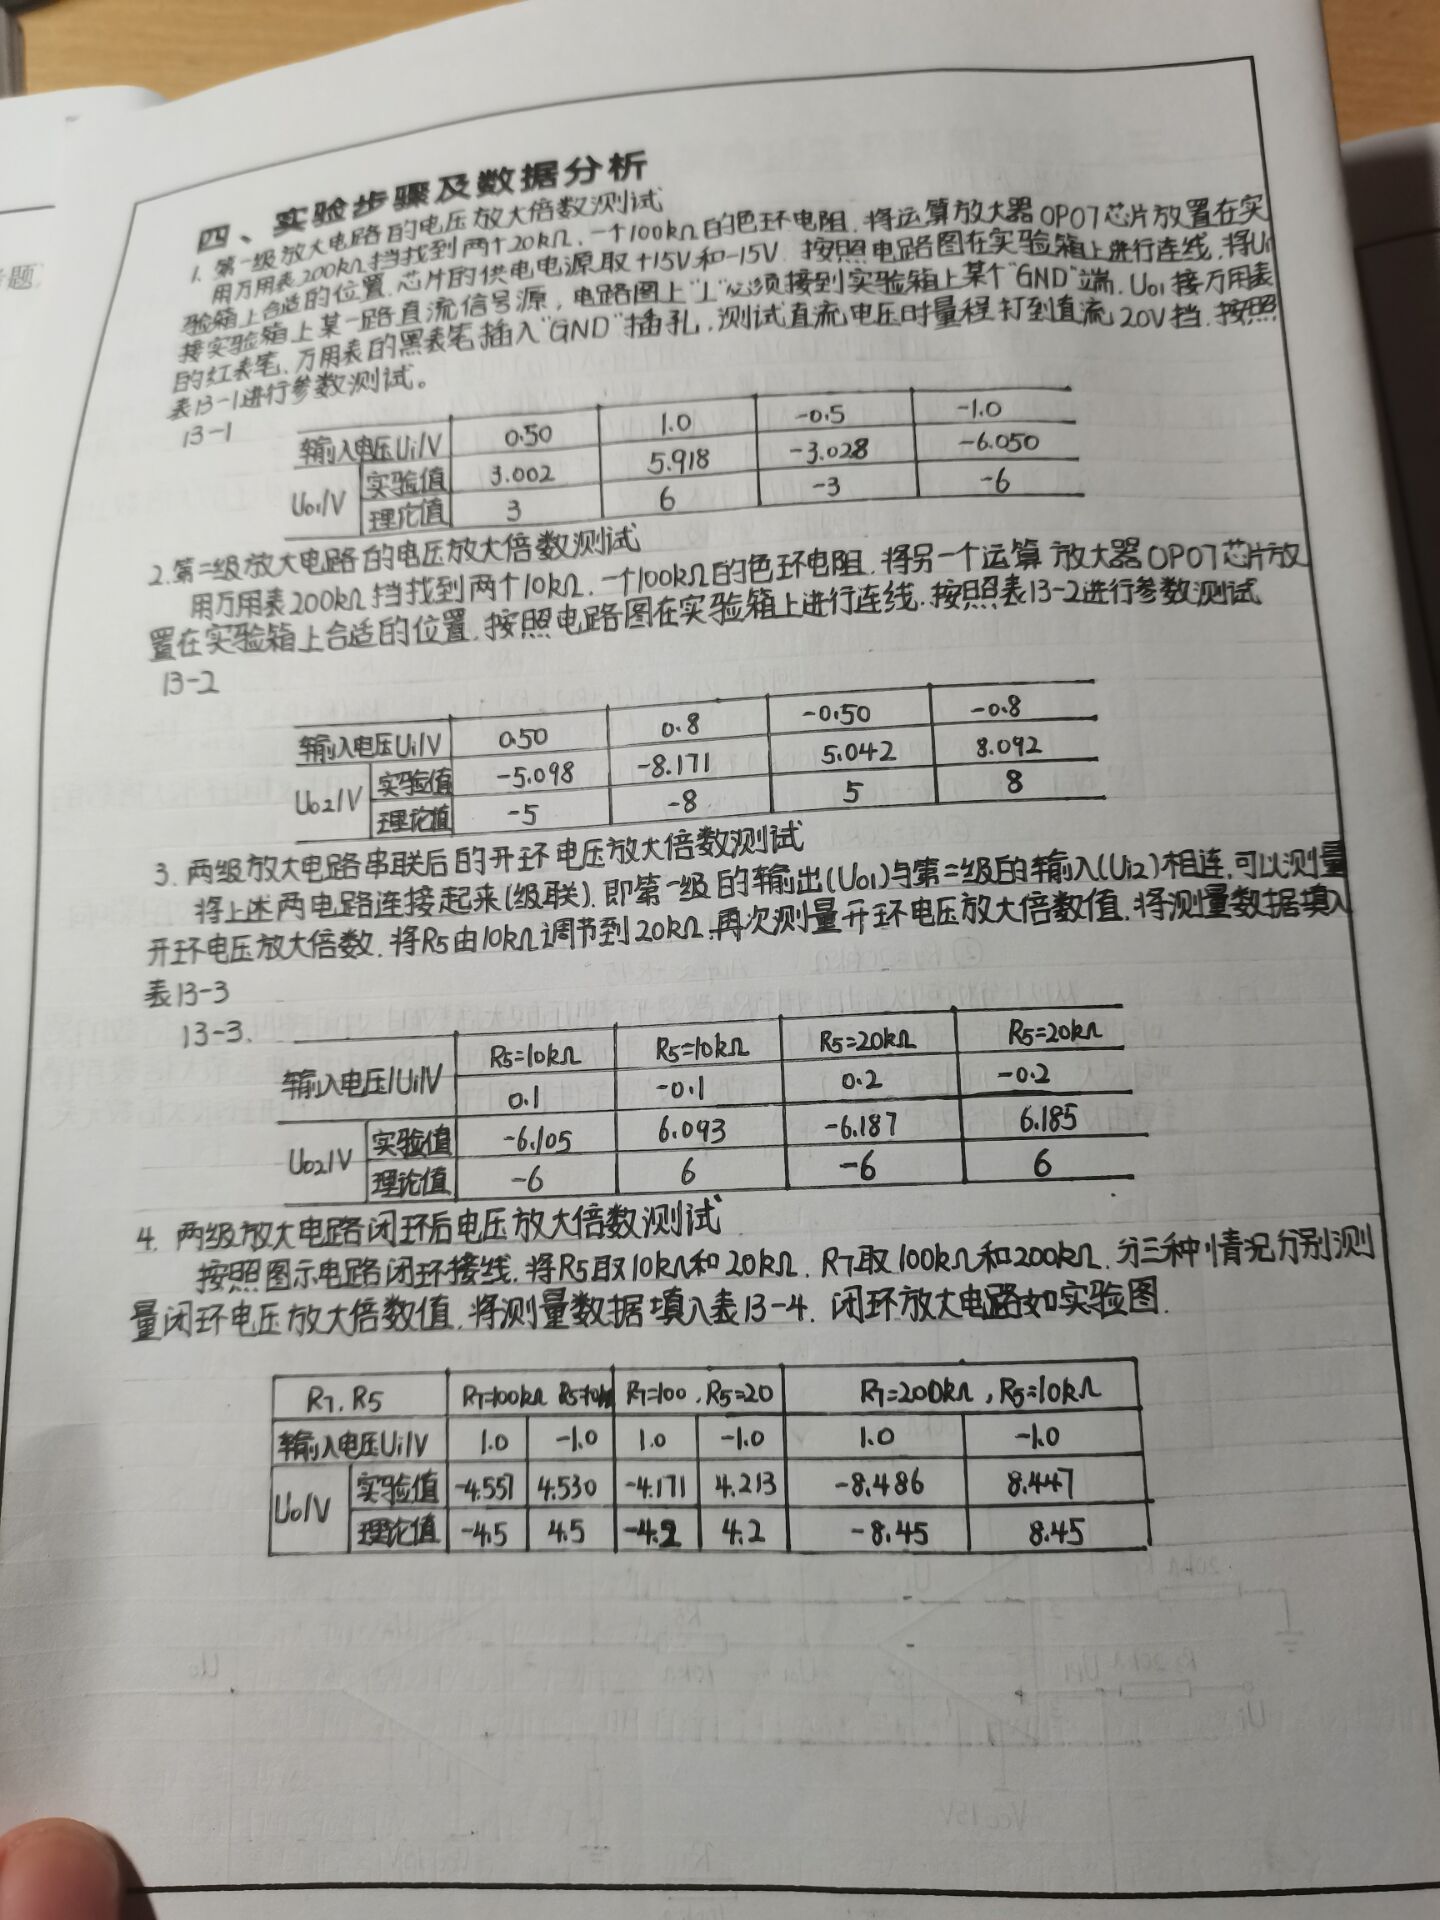 考题
四、实验步骤及数据分析
1. 第一级放大电路的电压放大倍数测试
用万用表200kΩ挡找到两个20kΩ、一个100kΩ的色环电阻，将运算放大器OP07芯片放置在实
验箱上合适的位置，芯片的供电电源取+15V和-15V，按照电路图在实验箱上进行连线，将Ui
接实验箱上某一路直流信号源，电路图上"⊥"必须接到实验箱上某个"GND"端，Uo1接万用表
的红表笔，万用表的黑表笔插入"GND"插孔，测试直流电压时量程打到直流20V挡，按照
表13-1进行参数测试。
13-1
输入电压Ui/V 0.50 1.0 -0.5 -1.0
Uo1/V 实验值 3.002 5.918 -3.028 -6.050
理论值 3 6 -3 -6
2. 第二级放大电路的电压放大倍数测试
用万用表200kΩ挡找到两个10kΩ、一个100kΩ的色环电阻，将另一个运算放大器OP07芯片放
置在实验箱上合适的位置，按照电路图在实验箱上进行连线，按照表13-2进行参数测试
13-2
输入电压Ui/V 0.50 0.8 -0.50 -0.8
Uo2/V 实验值 -5.098 -8.171 5.042 8.092
理论值 -5 -8 5 8
3. 两级放大电路串联后的开环电压放大倍数测试
将上述两电路连接起来(级联)，即第一级的输出(Uo1)与第二级的输入(Ui2)相连，可以测量
开环电压放大倍数，将R5由10kΩ调节到20kΩ，再次测量开环电压放大倍数值，将测量数据填入
表13-3
13-3.
输入电压/Ui/V R5=10kΩ R5=10kΩ R5=20kΩ R5=20kΩ
0.1 -0.1 0.2 -0.2
Uo2/V 实验值 -6.105 6.093 -6.187 6.185
理论值 -6 6 -6 6
4. 两级放大电路闭环后电压放大倍数测试
按照图示电路闭环接线，将R5取10kΩ和20kΩ，R7取100kΩ和200kΩ，分三种情况分别测
量闭环电压放大倍数值，将测量数据填入表13-4，闭环放大电路如实验图.
R7、R5 R7=100kΩ R5=10kΩ R7=100，R5=20 R7=200kΩ，R5=10kΩ
输入电压Ui/V 1.0 -1.0 1.0 -1.0 1.0 -1.0
Uo/V 实验值 -4.551 4.530 -4.171 4.213 -8.486 8.447
理论值 -4.5 4.5 -4.2 4.2 -8.45 8.45